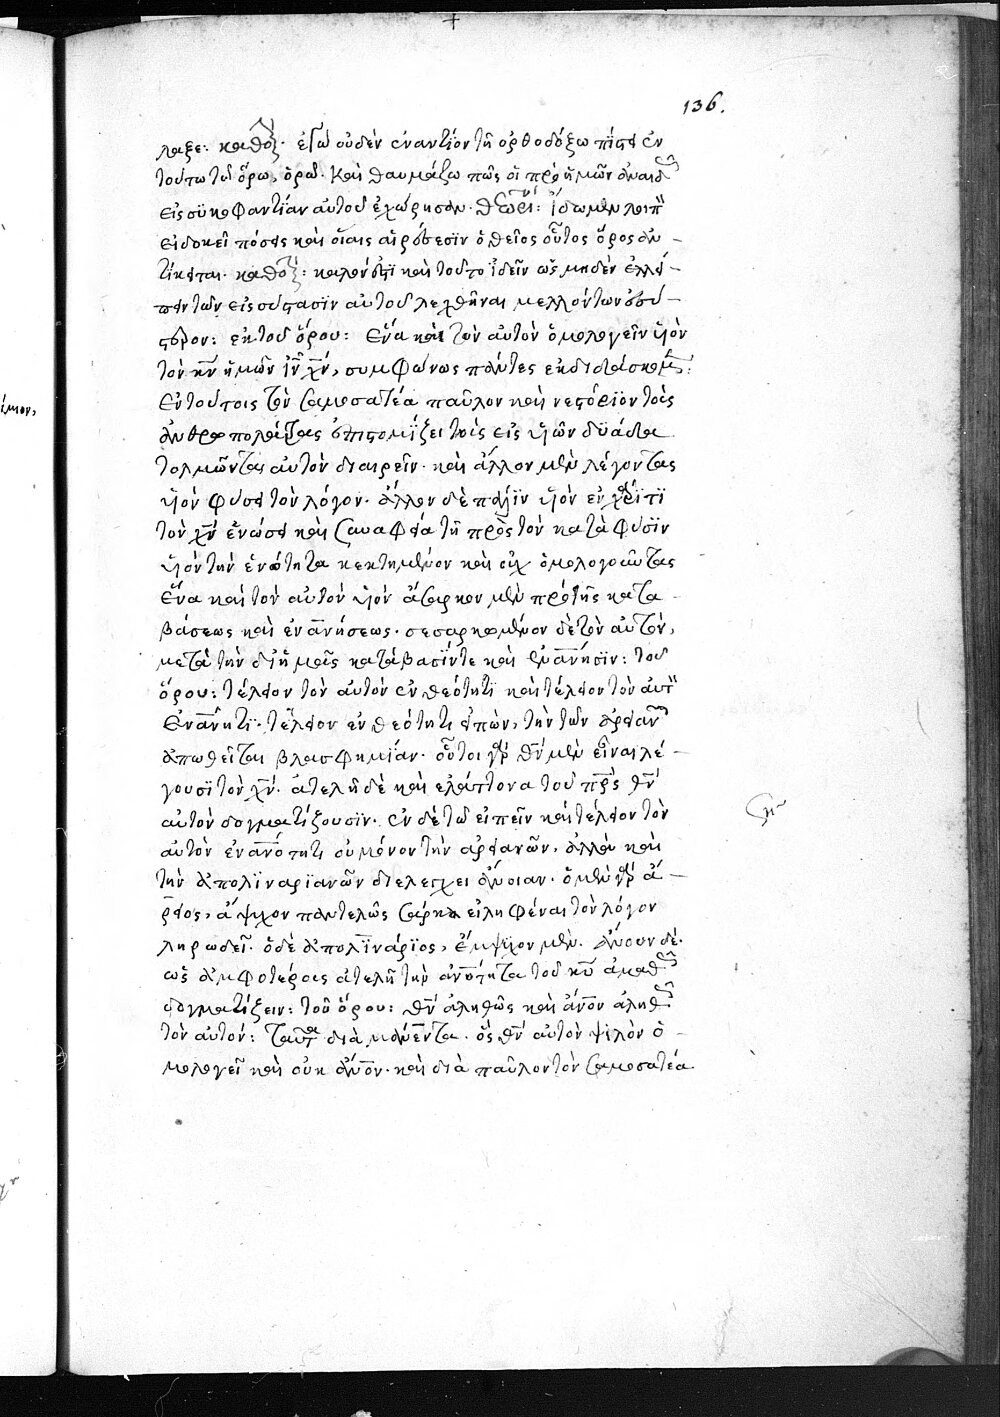 136.
λαξε: καθολ. ἐγὼ οὐδὲν ἐναντίον τῆ ὀρθοδόξω πίστει ἐν
τούτω τῶ ὅρω, ὁρῶ. Καὶ θαυμάζω πῶς οἱ πρὸ ἡμῶν ἀναιδῶς
εἰς συκοφαντίαν αὐτοῦ ἐχώρησαν. Θεωρι: ἴδωμεν λοιπὸν
εἰ δοκεῖ πόσαις καὶ οἵαις αἱρέσεσϊν ὁ θεῖος οὗτος ὅρος ἀν -
τίκειται. καθολ: καλόν ἐστϊ καὶ τοῦτο ἰδεῖν ὡς μηδὲν ἐλλει -
πόντων εἰς σύστασϊν αὐτοῦ λεχθῆναι μελλόντων ὕσ -
τερον: ἐκ τοῦ ὅρου: Ενα καὶ τὸν αὐτὸν ὁμολογεῖν ὑϊὸν
τὸν κν ἡμῶν ιν χν, συμφώνως πάντες ἐκδιδάσκομεν:
Εν τούτοις τὸν σαμοσατέα παῦλον καὶ νεστόριον τοὺς
ἀνθρωπολάτρας ἐπιστομίζει τοὺς εἰς υἱῶν δυάδα
τολμῶντας αὐτὸν διαιρεῖν. καὶ ἄλλον μὲν λέγοντας
υἱὸν φύσει τὸν λόγον. ἄλλον δὲ πάλϊν υἱὸν ἐν χάριτϊ
τὸν χν ἑνώσει καὶ συναφεία τῆ πρὸς τὸν κατὰ φύσϊν
υἱὸν τὴν ἑνότητα κεκτημένον καὶ οὐχ ὁμολογοῦντας
ἕνα καὶ τὸν αὐτὸν υἱὸν ἄσαρκον μὲν πρὸ τῆς κατα -
βάσεως καὶ ἐνανήσεως. σεσαρκωμένον δὲ τὸν αὐτὸν,
μετὰ τὴν δι ἡμᾶς κατάβασίν τε καὶ ἐνανήσϊν: τοῦ
ὅρου: τέλειον τὸν αὐτὸν ἐν θεότητι καὶ τέλειον τὸν αὐτὸν
ἐν ανητι. τέλειον ἐν θεότητι εἰπὼν, τὴν τῶν ἀρειανῶν
ἀπωθεῖται βλασφημίαν. οὗτοι γὰρ θν μὲν εἶναι λέ -
γουσϊ τὸν χν. ἀτελῆ δὲ καὶ ἐλάττονα τοῦ πρς θν
αὐτὸν δογματίζουσϊν. ἐν δὲ τῶ εἰπεῖν καὶ τέλειον τὸν
αὐτὸν ἐν ανότητι οὐ μόνον τὴν ἀρειανῶν, ἀλλὰ καὶ
τὴν ἀπολϊναρϊανῶν διελέγχει ἄνοιαν. ὁ μὲν γὰρ ἄ -
ρειος, ἄψυχον παντελῶς σάρκα εἰληφέναι τὸν λόγον
ληρωδεῖ. ὁ δὲ ἀπολϊνάρϊος, ἔμψυχον μὲν. ἄνουν δὲ.
ὡς ἀμφοτέροις ἀτελῆ τὴν ανότητα τοῦ κυ ἀμαθῶς
δογματίζειν: τοῦ ὅρου: θν ἀληθῶς καὶ ανον ἀληθῶς
τὸν αὐτὸν: ταῦτα διὰ μανέντα. ὃς θν αὐτὸν ψιλὸν ὁ -
μολογεῖ καὶ οὐκ ανον. καὶ διὰ παῦλον τὸν σαμοσατέα